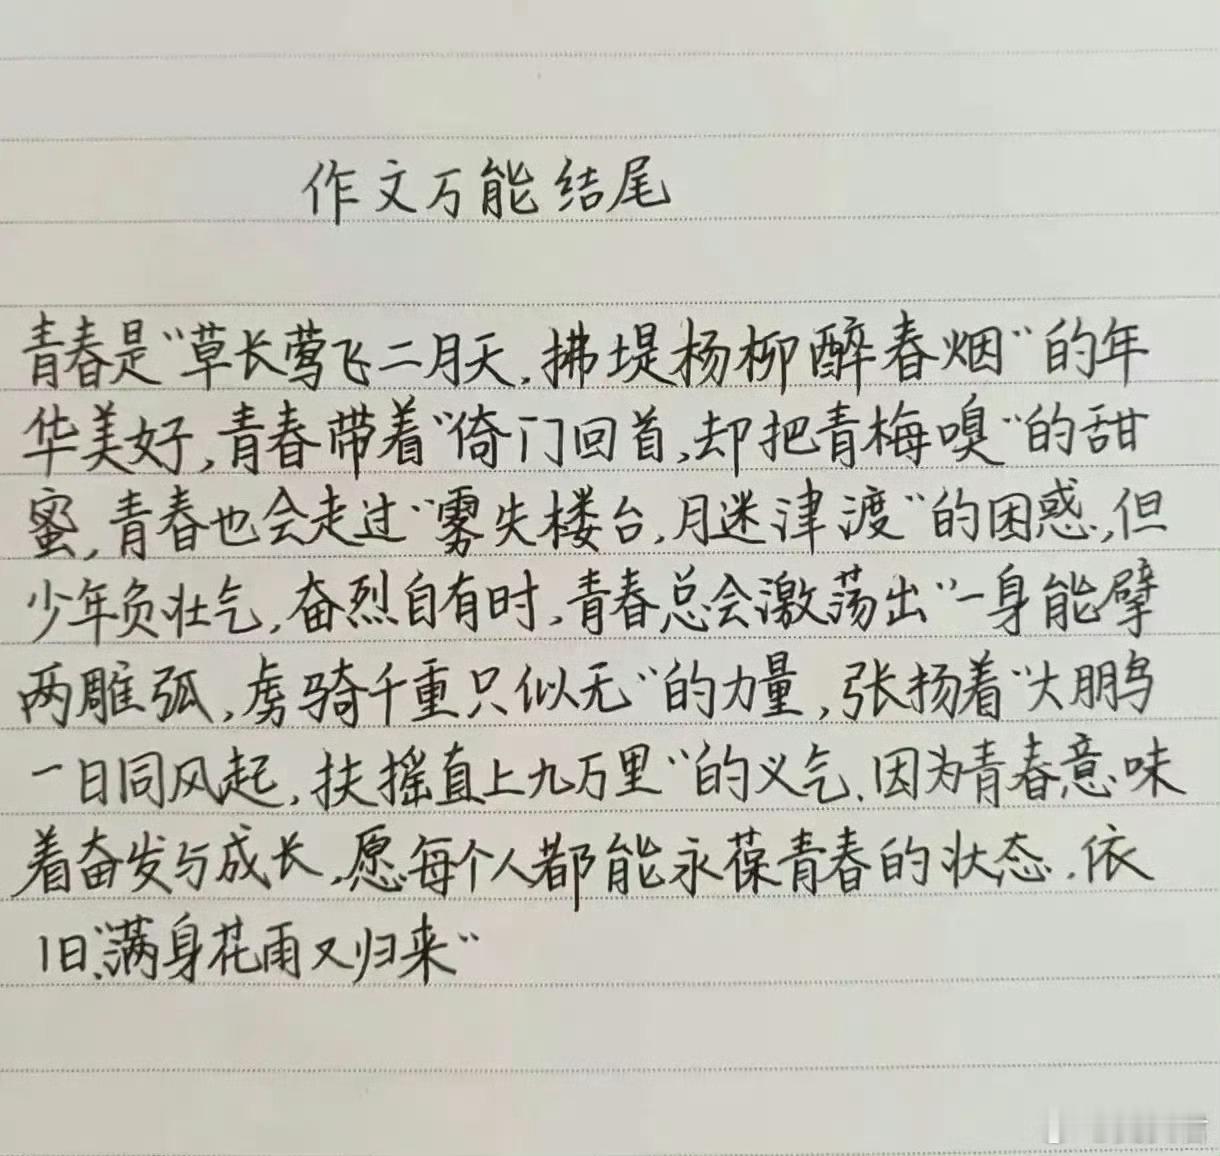 作文万能结尾
青春是“草长莺飞二月天，拂堤杨柳醉春烟”的年
华美好，青春带着“倚门回首，却把青梅嗅”的甜
蜜，青春也会走过“雾失楼台，月迷津渡”的困惑，但
少年负壮气，奋烈自有时，青春总会激荡出“一身能擘
两雕弧，虏骑千重只似无”的力量，张扬着“大鹏
一日同风起，扶摇直上九万里”的义气，因为青春意味
着奋发与成长，愿每个人都能永葆青春的状态，依
旧“满身花雨又归来”